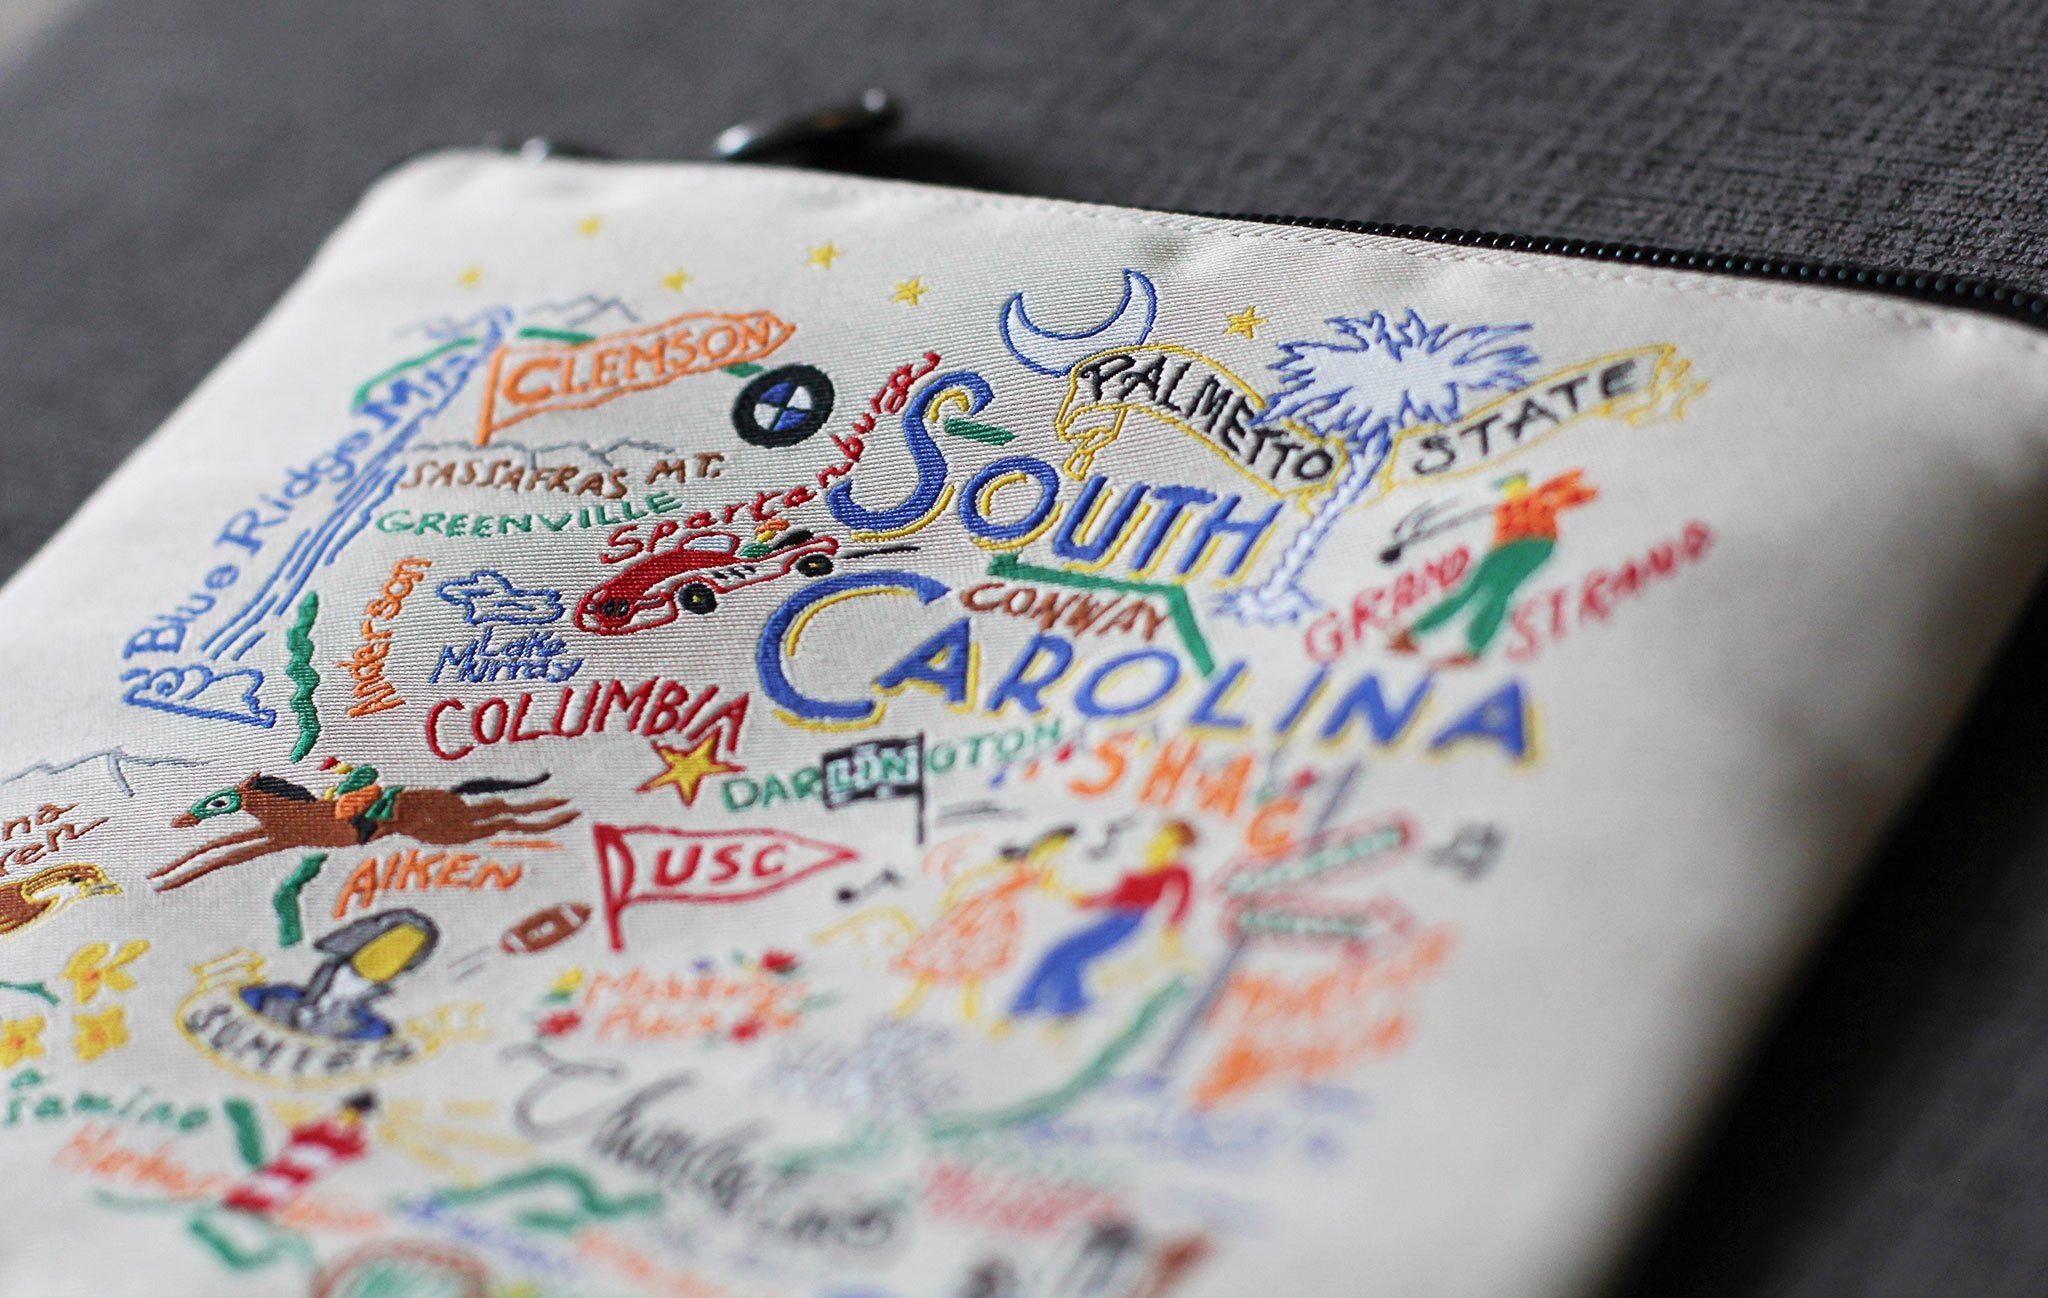 Blue Ridge Mts.
CLEMSON
PALMETTO STATE
SASSAFRAS MT.
GREENVILLE
Spartenburg
SOUTH
CAROLINA
GRAND STRAND
Anderson
Lake
Murray
CONWAY
COLUMBIA
DARLINGTON
SHAG
AIKEN
USC
SUMTER
Charleston